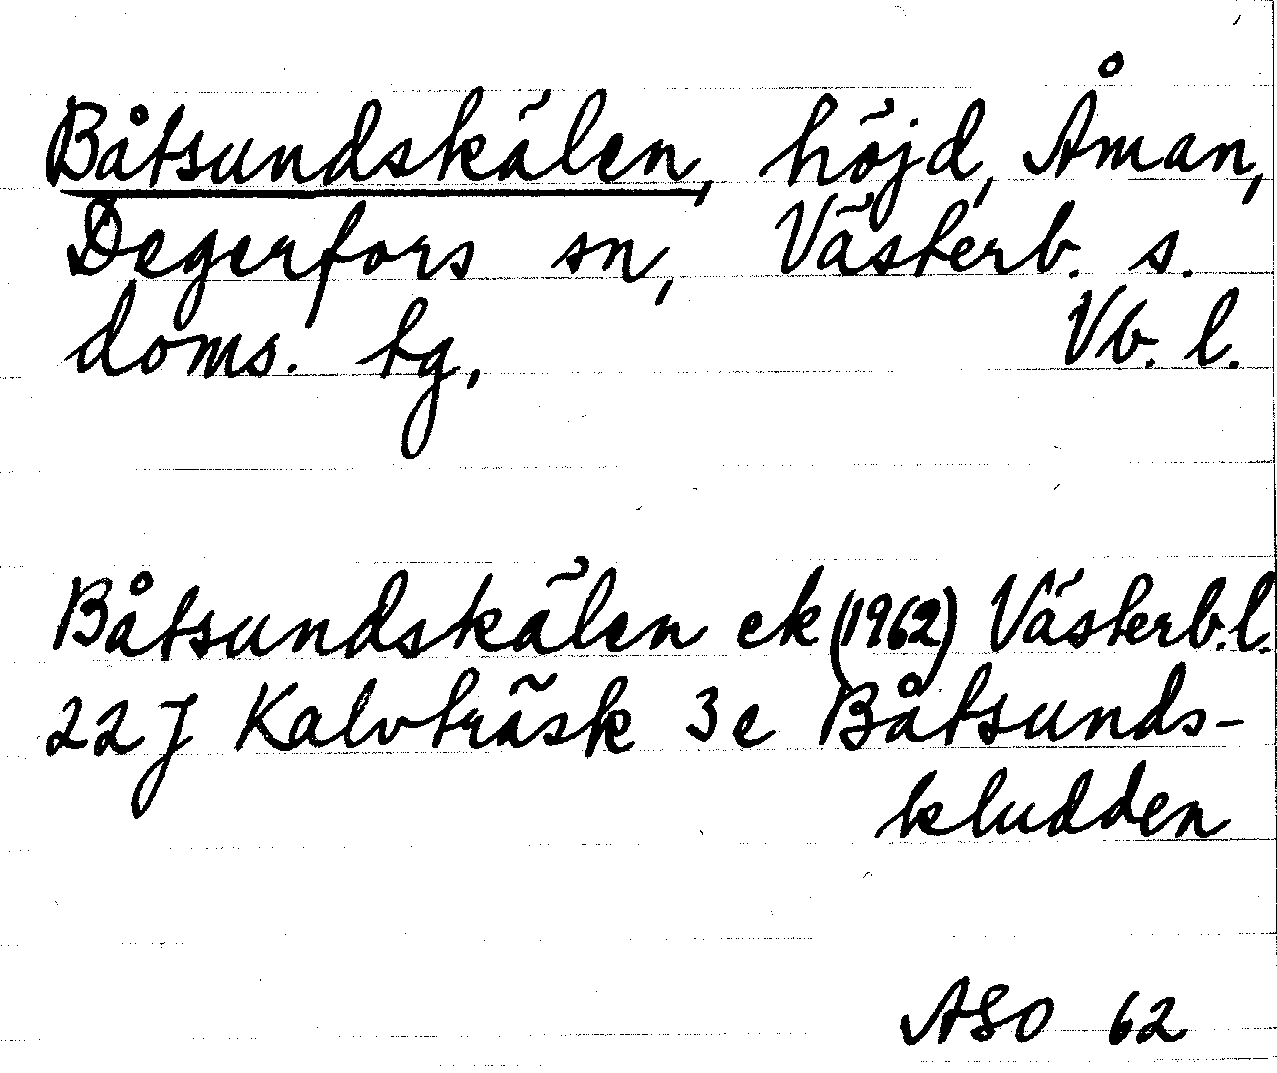 Båtsundskälen, höjd, Åman,
Degerfors sn, Västerb. s.
doms. tg, Vb. l.
Båtsundskälen ek (1962) Västerb.l.
22 J Kalvträsk 3 e Båtsunds-
kludden
ASO 62